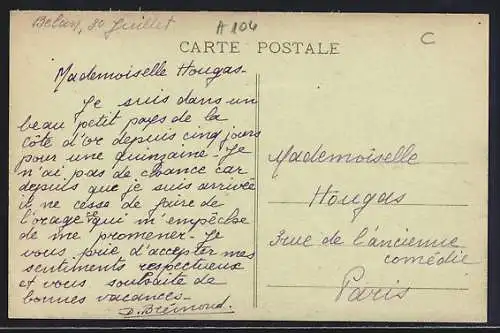 Belan, 30 Juillet
A 104
C
CARTE POSTALE
Mademoiselle Hougas-
Je suis dans un
beau petit pays de la
côte d'or depuis cinq jours
pour une quinzaine - Je
n'ai pas de chance car
depuis que je suis arrivée
il ne cesse de faire de
l'orage ce qui m'empêche
de me promener - Je
vous prie d'accepter mes
sentiments respectueux
et vous souhaite de
bonnes vacances-
D. Brémond.
Mademoiselle
Hougas
3 rue de l'ancienne
comédie
Paris